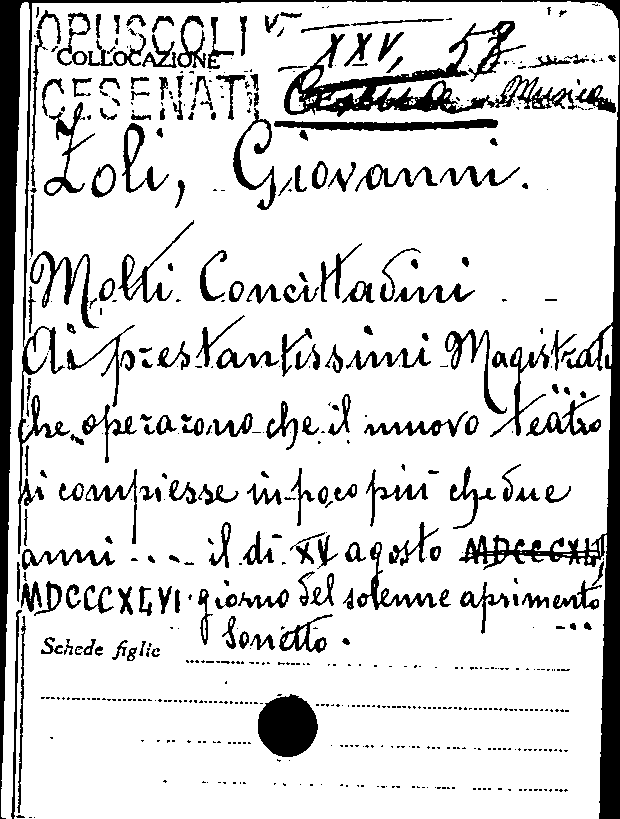 OPUSCOLI XXV, 58
COLLOCAZIONE
CESENATI Musica
Zoli, Giovanni.
Molti Concittadini . -
Ai prestantissimi Magistrati
che operarono che il nuovo teatro
si compiesse in poco più che due
anni .... il dì XV agosto MDCCCXLV
MDCCCXLVI giorno del solenne aprimento
... Sonetto.
Schede figlie